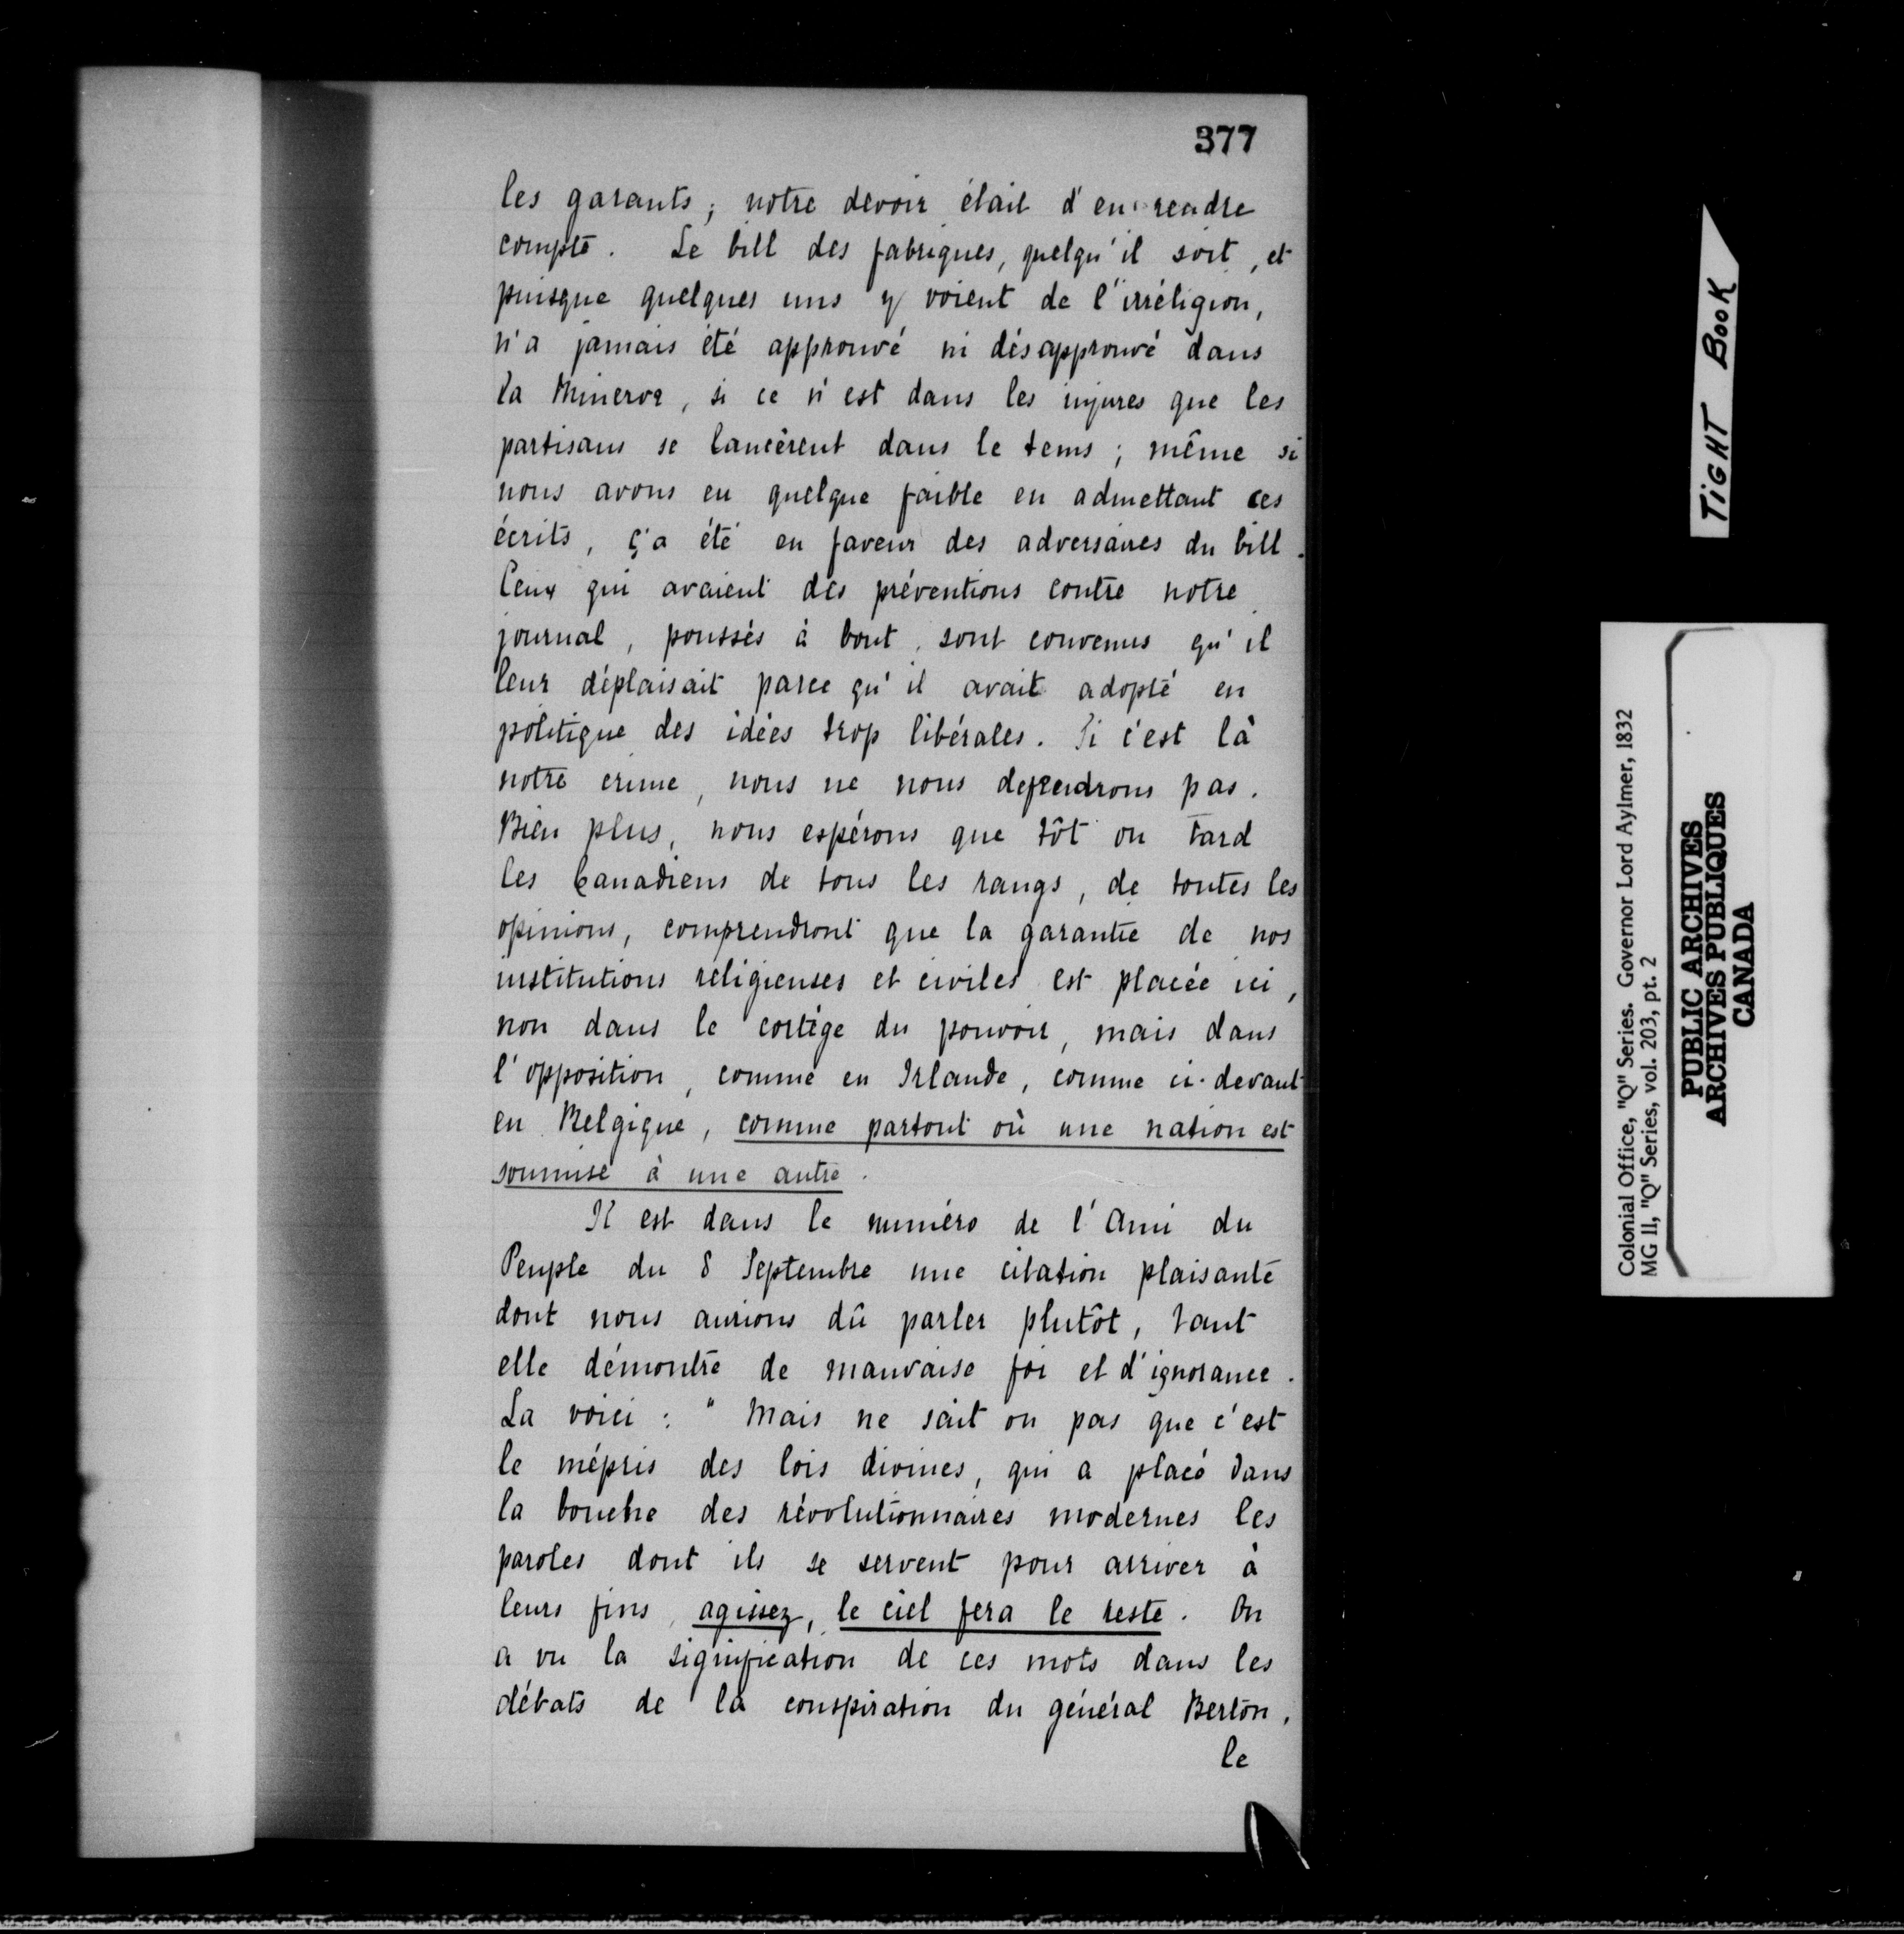 377
les garants; notre devoir était d'en rendre
compte. Le bill des fabriques, quelqu'il soit, et
puisque quelques uns y voient de l'irréligion,
n'a jamais été approuvé ni désapprouvé dans
la Minerve, si ce n'est dans les injures que les
partisans se lancèrent dans le tems; même si
nous avons eu quelque faible en admettant ces
écrits, ç'a été en faveur des adversaires du bill.
Ceux qui avaient des préventions contre notre
journal, poussés à bout, sont convenus qu'il
leur déplaisait parce qu'il avait adopté en
politique des idées trop libérales. Si c'est là
notre crime, nous ne nous defendrons pas.
Bien plus, nous espérons que tôt ou tard
les Canadiens de tous les rangs, de toutes les
opinions, comprendront que la garantie de nos
institutions religieuses et civiles est placée ici,
non dans le cortège du pouvoir, mais dans
l'opposition, comme en Irlande, comme ci-devant
en Belgique, comme partout où une nation est
soumise à une autre.
Il est dans le numéro de l'Ami du
Peuple du 8 Septembre une citation plaisante
dont nous aurions dû parler plutôt, tant
elle démontre de mauvaise foi et d'ignorance.
La voici: " Mais ne sait on pas que c'est
le mépris des lois divines, qui a placé dans
la bouche des révolutionnaires modernes les
paroles dont ils se servent pour arriver à
leurs fins, agissez, le ciel fera le reste. On
a vu la signification de ces mots dans les
débats de la conspiration du général Berton,
le
TIGHT BOOK
Colonial Office, "Q" Series. Governor Lord Aylmer, 1832
MG 11, "Q" Series, vol. 203, pt. 2
PUBLIC ARCHIVES
ARCHIVES PUBLIQUES
CANADA